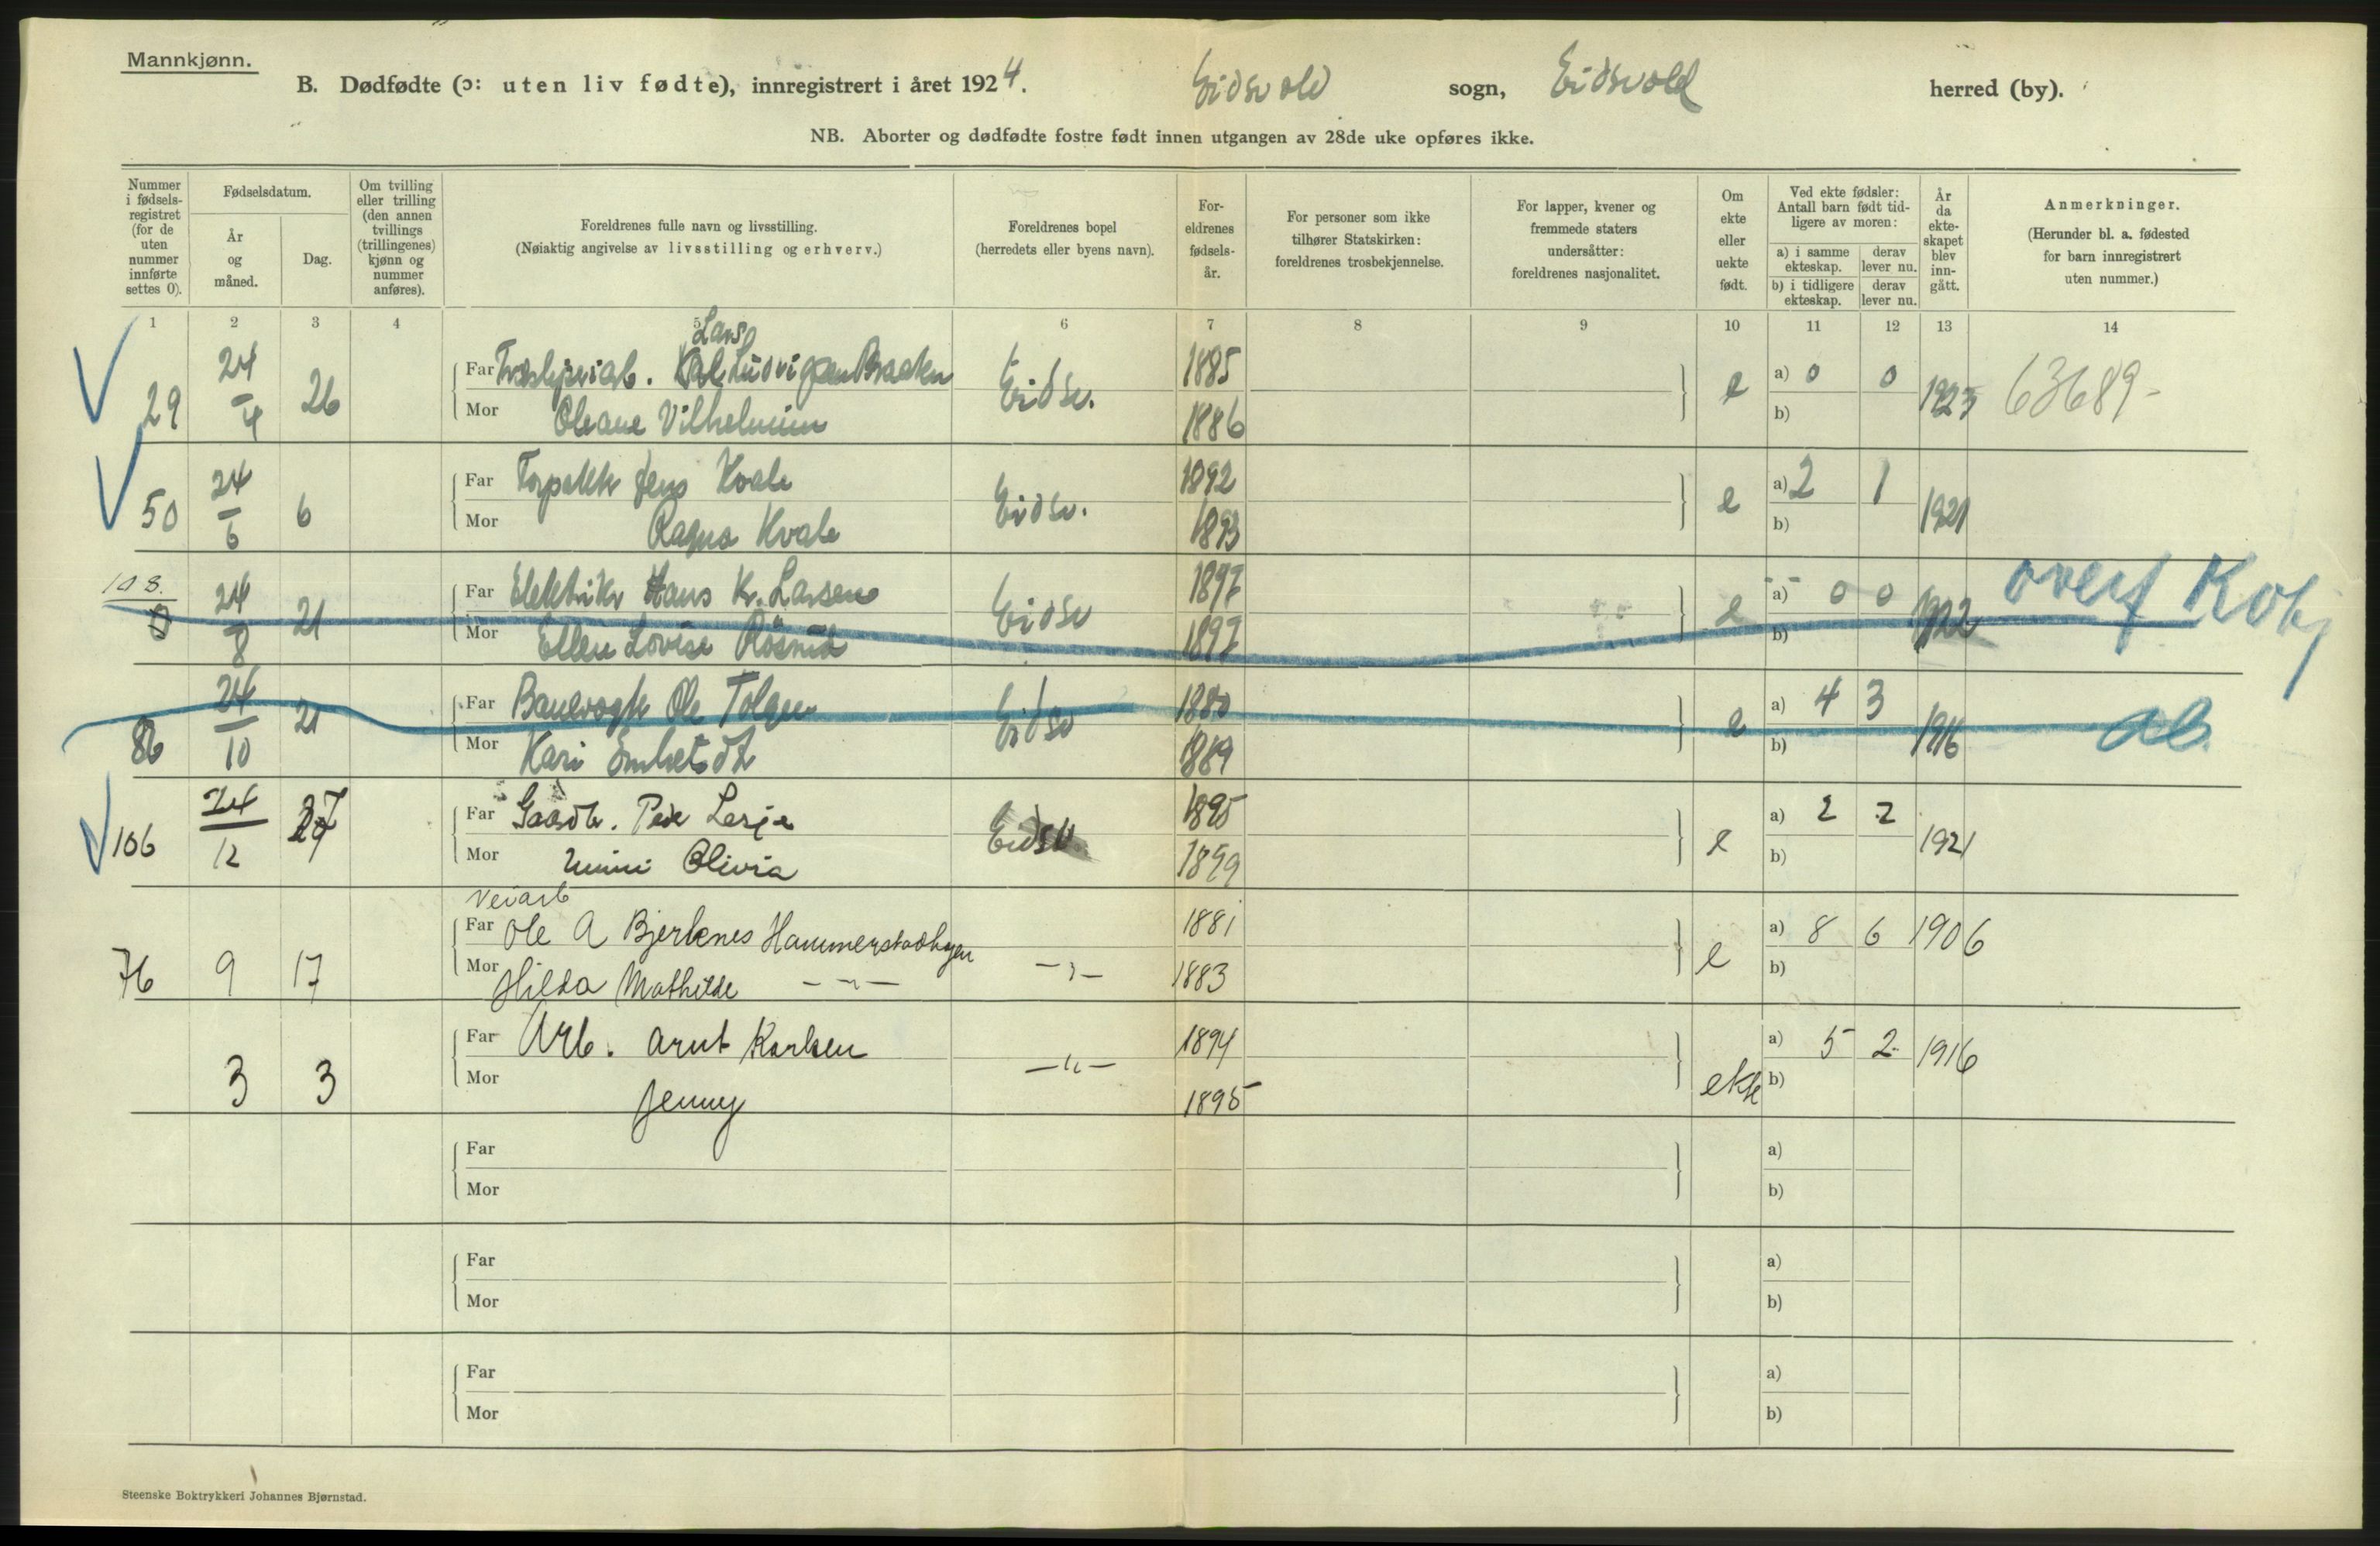 Mannkjønn.
B. Dødfødte (ɔ: uten liv fødte), innregistrert i året 1924. Eidsvold sogn, Eidsvold herred (by).
NB. Aborter og dødfødte fostre født innen utgangen av 28de uke opføres ikke.
Nummer i fødsels-registret (for de uten nummer innførte settes 0).
Fødselsdatum.
År og måned.
Dag.
Om tvilling eller trilling (den annen tvillings (trillingenes) kjønn og nummer anføres).
Foreldrenes fulle navn og livsstilling.
(Nøiaktig angivelse av livsstilling og erhverv.)
Foreldrenes bopel
(herredets eller byens navn).
For-eldrenes fødsels-år.
For personer som ikke tilhører Statskirken: foreldrenes trosbekjennelse.
For lapper, kvener og fremmede staters undersåtter: foreldrenes nasjonalitet.
Om ekte eller uekte født.
Ved ekte fødsler: Antall barn født tid-ligere av moren:
a) i samme ekteskap. derav lever nu.
b) i tidligere ekteskap. derav lever nu.
År da ekte-skapet blev inn-gått.
Anmerkninger.
(Herunder bl. a. fødested for barn innregistrert uten nummer.)
1 2 3 4 5 6 7 8 9 10 11 12 13 14
Lars
29 24/4 26 Far Ludvigsen Braaten Eidsv. 1885 e a) 0 0 1923 63689-
Mor Oleane Vilhelmine 1886 b)
50 24/6 6 Far Jens Kvale Eidsv. 1892 e a) 2 1 1921
Mor Ragna Kvale 1893 b)
103. 0 24/8 21 Far Elektriker Hans Kr. Larsen Eidsv 1897 e a) 0 0 1922 overf Kobj
Mor Ellen Lovise 1897 b)
86 24/10 21 Far Banevogt Ole Tolgen Eidsv 1880 e a) 4 3 1916 ab
Mor Kari 1889 b)
106 24/12 27 Far Gaardbr. Peder Eidsv 1895 e a) 2 2 1921
Mor Mimi Olivia 1899 b)
Veiarb
76 9 17 Far Ole A Bjerkenes Hammerstadhagen -"- 1881 e a) 8 6 1906
Mor Hilda Mathilde -"- 1883 b)
3 3 Far Arb. Arnt Karlsen -"- 1894 ekte a) 5 2 1916
Mor Jenny 1895 b)
Far a)
Mor b)
Far a)
Mor b)
Far a)
Mor b)
Steenske Boktrykkeri Johannes Bjørnstad.